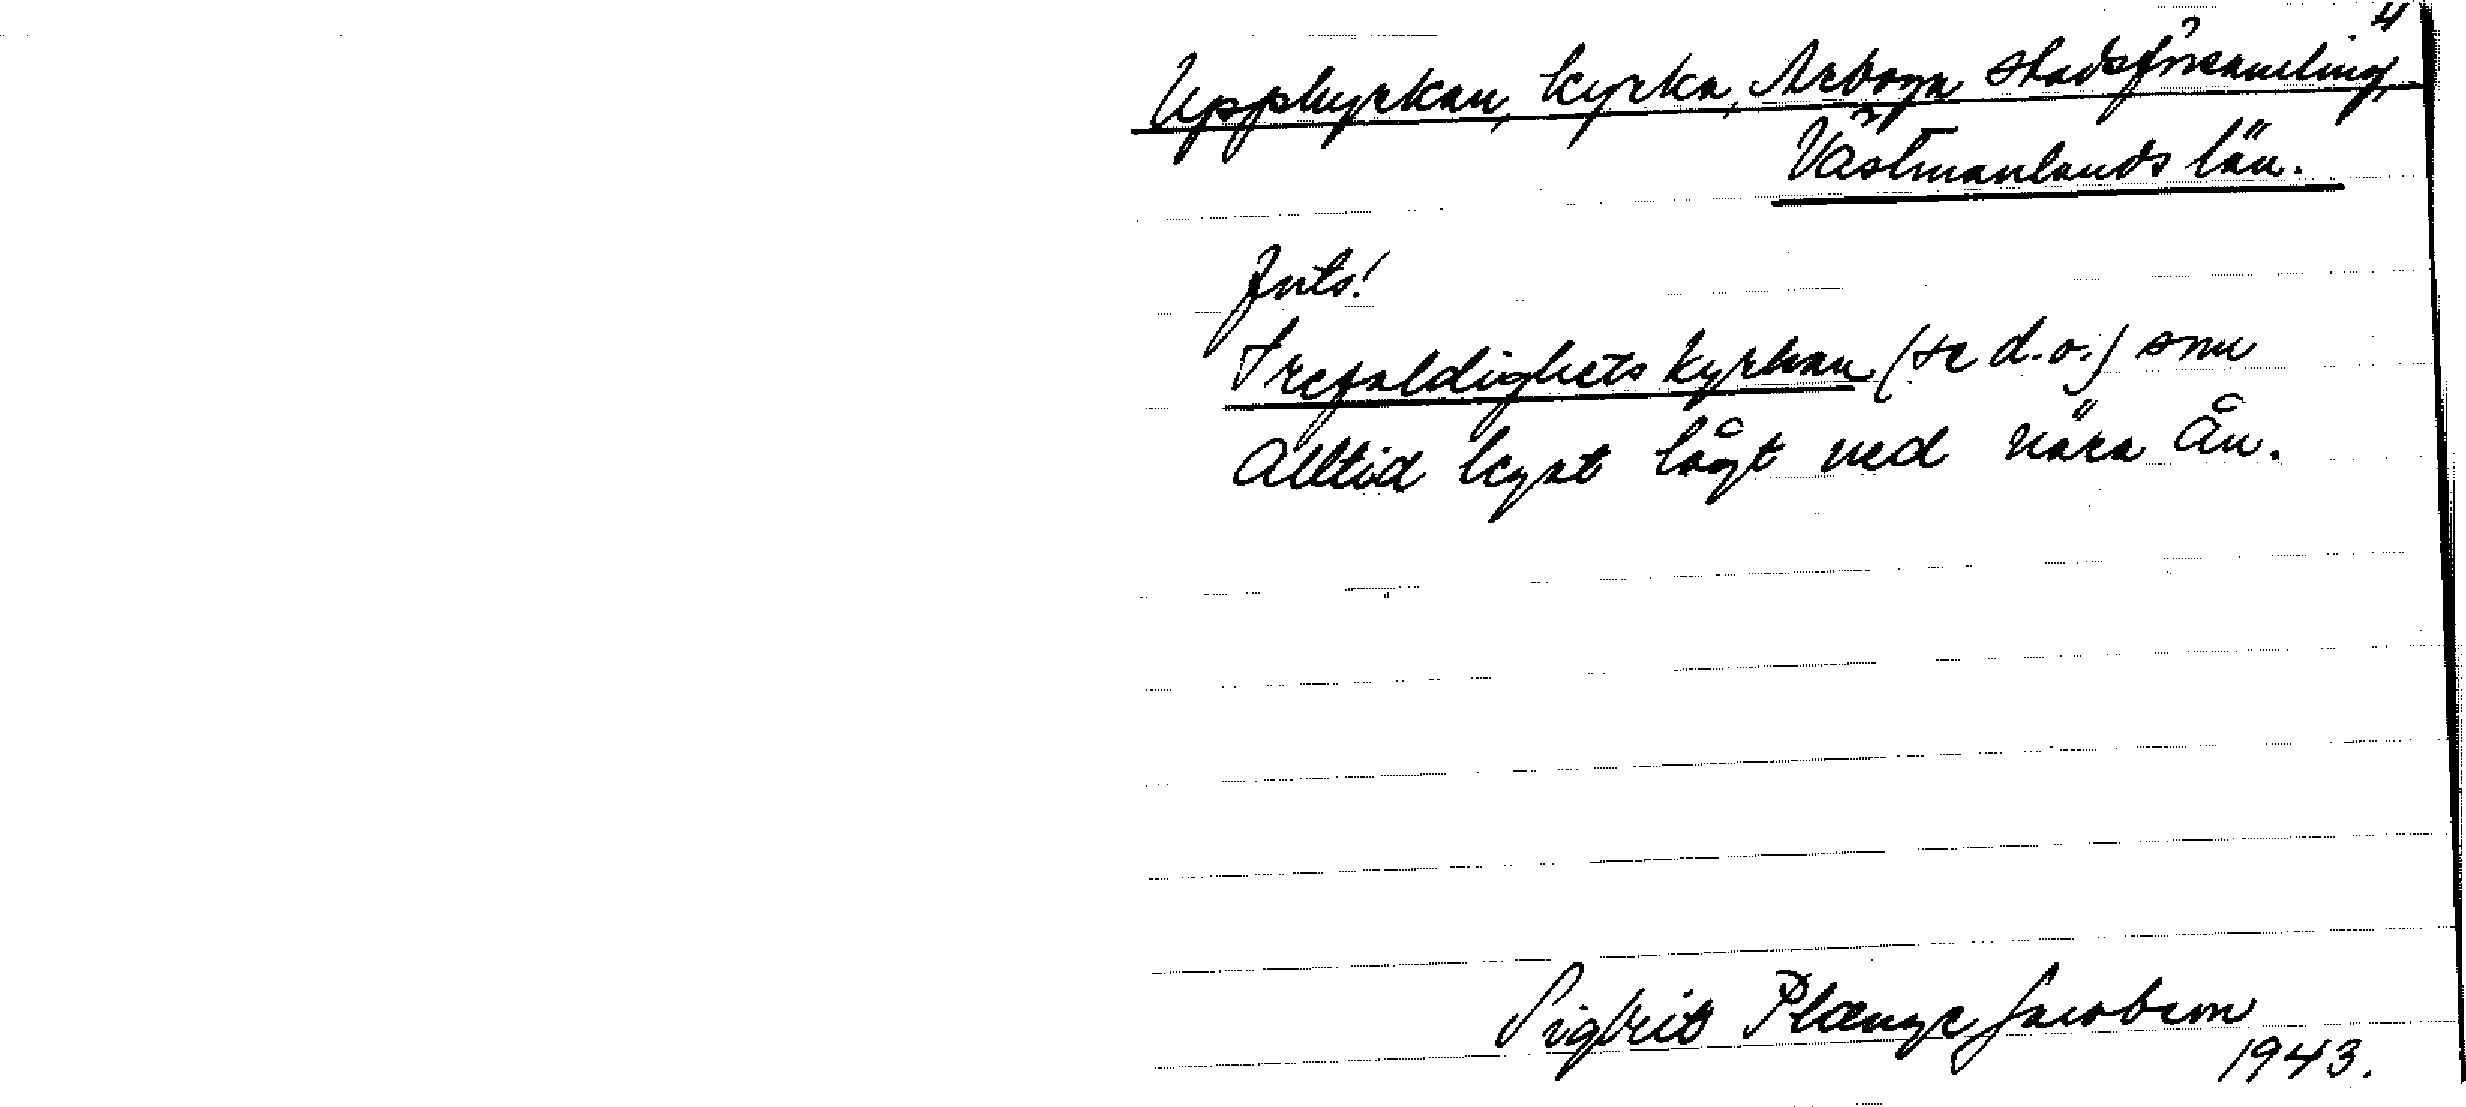 4
Uppkyrkan, kyrka, Arboga stadsförsamling,
Västmanlands län.
forts!
Trefaldighetskyrkan (se d.o.) som
alltid legat lågt ned nära ån.
Sigbrit Plænge Jacobson
1943.